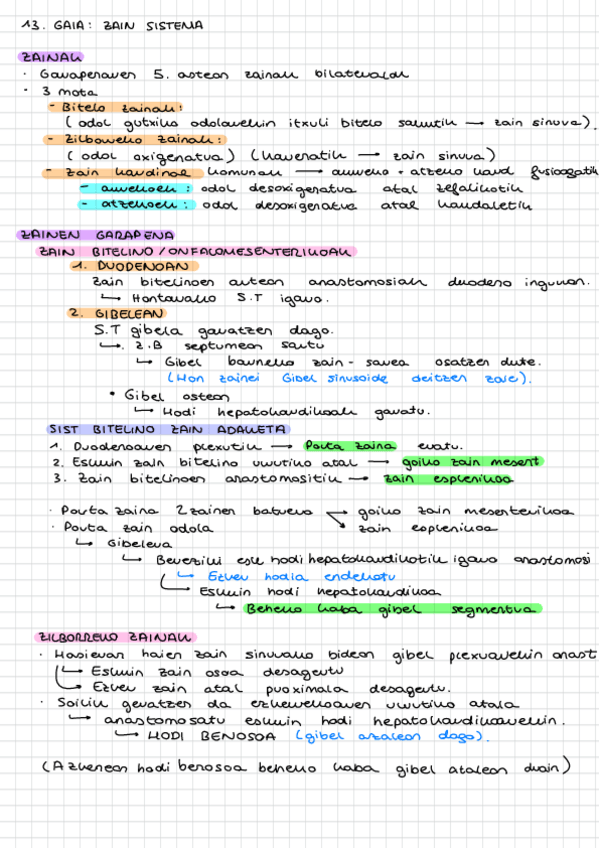 13. GAIA: ZAIN SISTEMA
ZAINAK
· Garaperaren 5. astean zainak bilateralak
· 3 mota
- Bitelo zainak:
(odol gutxiko odolarekin itxuli bitelo sakutik → zain sinura).
- Zilborreko zainak:
(odol oxigenatua) (koreratik → zain sinura)
- Zain kardinal komunak → aurreko + atzeko kard fusioagatik
- aurrekoek: odol desoxigenatua atal zefalikotik
- atzekoek: odol desoxigenatua atal kaudaletik
ZAINEN GARAPENA
ZAIN BITELINO/ONFALOMESENTERIKOAK
1. DUODENOAN
Zain bitelinoen artean anastomosiak duodeno inguruan.
↳ Hortarako S.T igaro.
2. GIBELEAN
S.T gibela garatzen dago.
↳ Z.B septumean sartu
↳ Gibel barneko zain-sarea osatzen dute.
(Hor zainei Gibel sinusoide deitzen zaie).
• Gibel ostean
↳ Hodi hepatokardikoak garatu.
SIST BITELINO ZAIN ADARKETA
1. Duodenoaren plexutik → Porta zaina eratu.
2. Eskuin zain bitelino urrutiko atal → goiko zain mesent
3. Zain bitelinoen anastomositik → zain esplenikoa
· Porta zaina 2 zainen batura → goiko zain mesenterikoa
· Porta zain odola ↘ zain esplenikoa
↳ Gibelera
↳ Bereziki esk hodi hepatokardikotik igaro anastomosi
↳ Ezker hodia endekatu
↳ Eskuin hodi hepatokardikoa
↳ Beheko kaba gibel segmentua
ZILBORREKO ZAINAK
· Hasieran haien zain sinurako bidean gibel plexuarekin anast
↳ Eskuin zain osoa desagertu
↳ Ezker zain atal proximala desagertu.
· Soilik geratzen da ezkerrekoaren urrutiko atala
↳ anastomosatu eskuin hodi hepatokardikoarekin.
↳ HODI BENOSOA (gibel azalean dago).
(Azkenean hodi benosoa beheko kaba gibel atalean drain)